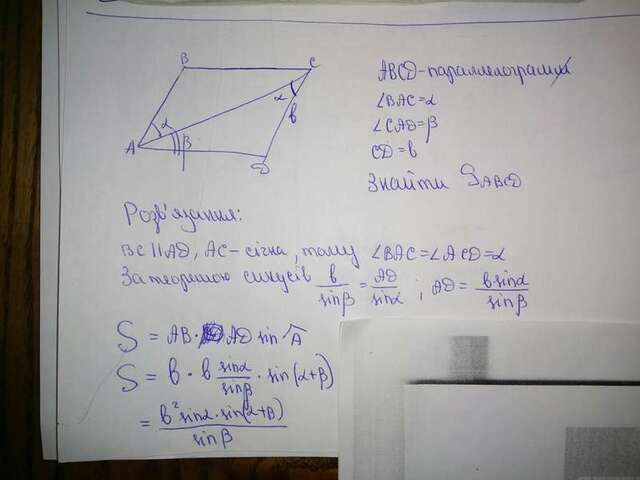 B
C
α
α
в
A
β
D
ABCD-параллелограмм
∠BAC=α
∠CAD=β
CD=в
Знайти S_ABCD
Розв'язання:
BC||AD, AC-січна, тому ∠BAC=∠ACD=α
За теоремою синусів в/sinβ = AD/sinα ; AD = в sinα/sinβ
S = AB· AD sin A
S = в · в sinα/sinβ · sin(α+β)
= в² sinα·sin(α+β)/sinβ